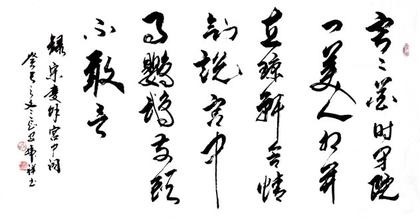 寂々花时闭院
门美人相并
立琼轩含情
欲说宫中
事鹦鹉前头
不敢言
録朱庆馀宫中词
癸巳之冬
书